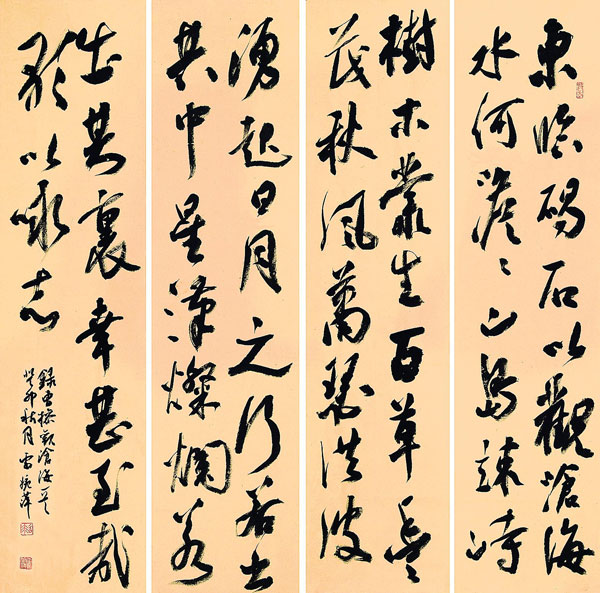 東臨碣石以觀滄海
水何澹〻山島竦峙
樹木叢生百草豐
茂秋風蕭瑟洪波
湧起日月之行若出
其中星漢燦爛若
出其裏幸甚至哉
歌以咏志
錄曹操觀滄海一首
癸卯秋月雷萍